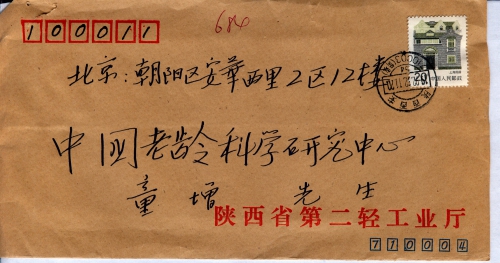 100011
684
北京:朝阳区安华西里2区12楼
中国老龄科学研究中心
童增 先生
陕西省第二轻工业厅
710004
20
中国人民邮政